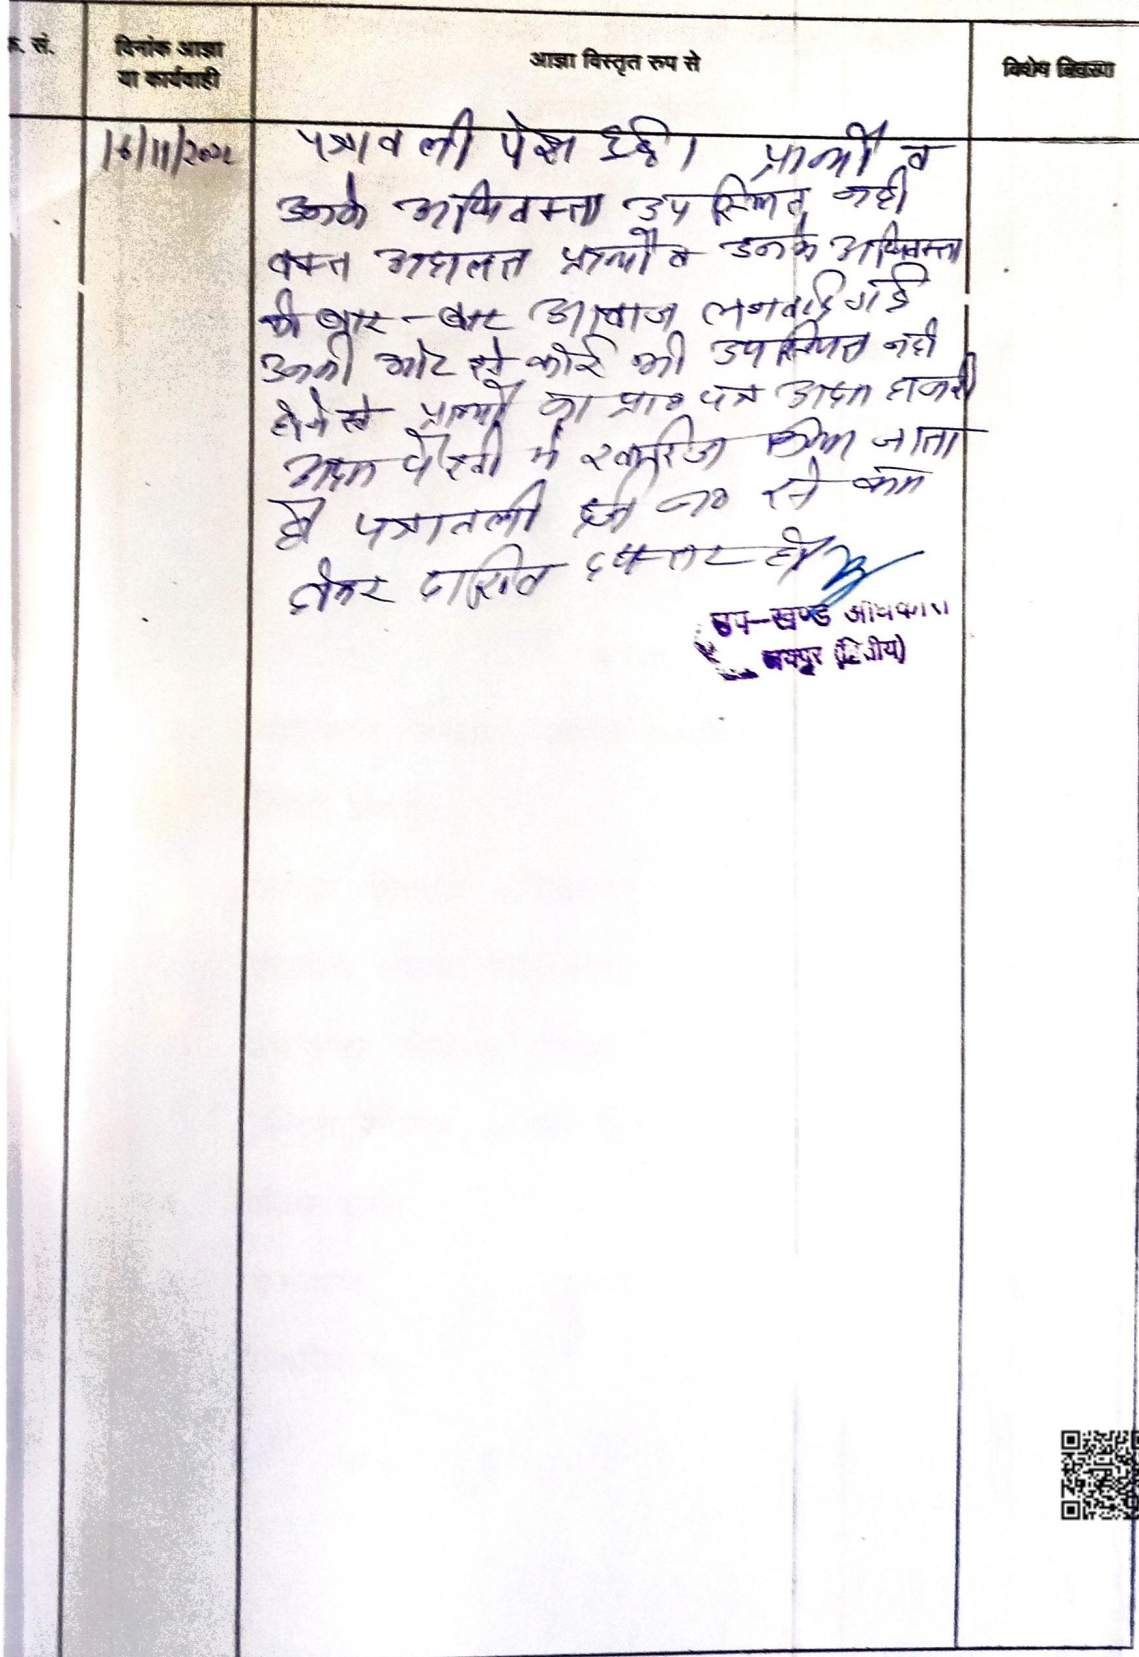 क. सं.
दिनांक आज्ञा
या कार्यवाही
आज्ञा विस्तृत रुप से
विशेष विवरण
16/11/202
पत्रावली पेश हुई। प्रार्थी व
उनके अधिवक्ता उपस्थित नही
वक्त अदालत प्रार्थी व उनके अधिवक्ता
को बार-बार आवाज लगवाई गई
उनकी ओर से कोई भी उपस्थित नही
होने से प्रार्थी का प्रा० पत्र अदम हाजरी
अदम पैरवी में खारिज किया जाता
है पत्रावली नं० से कम
होकर दाखिल दफ्तर हो
उप-खण्ड अधिकारी
जयपुर (द्वितीय)